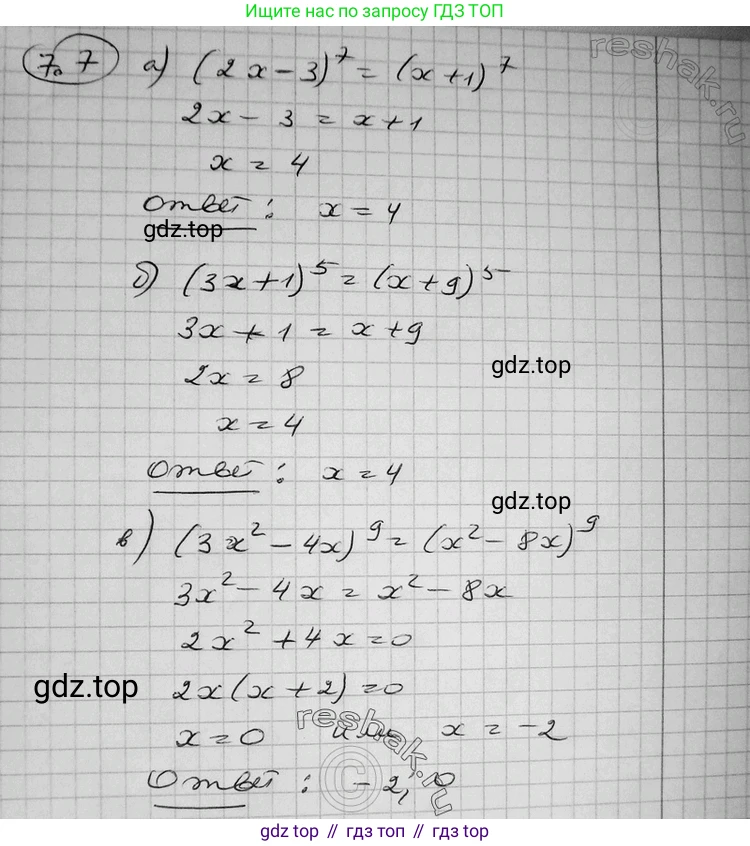 Ищите нас по запросу ГДЗ ТОП
7.7 а) (2x-3)^7 = (x+1)^7
reshak.ru
2x - 3 = x+1
x = 4
Ответ: x = 4
gdz.top
б) (3x+1)^5 = (x+9)^5
3x + 1 = x+9
gdz.top
2x = 8
x = 4
Ответ: x = 4
gdz.top
в) (3x^2 - 4x)^9 = (x^2 - 8x)^9
3x^2 - 4x = x^2 - 8x
2x^2 + 4x = 0
gdz.top
2x(x+2) = 0
x = 0 или x = -2
reshak.ru
Ответ: -2; 0
©
gdz.top // гдз топ // gdz.top